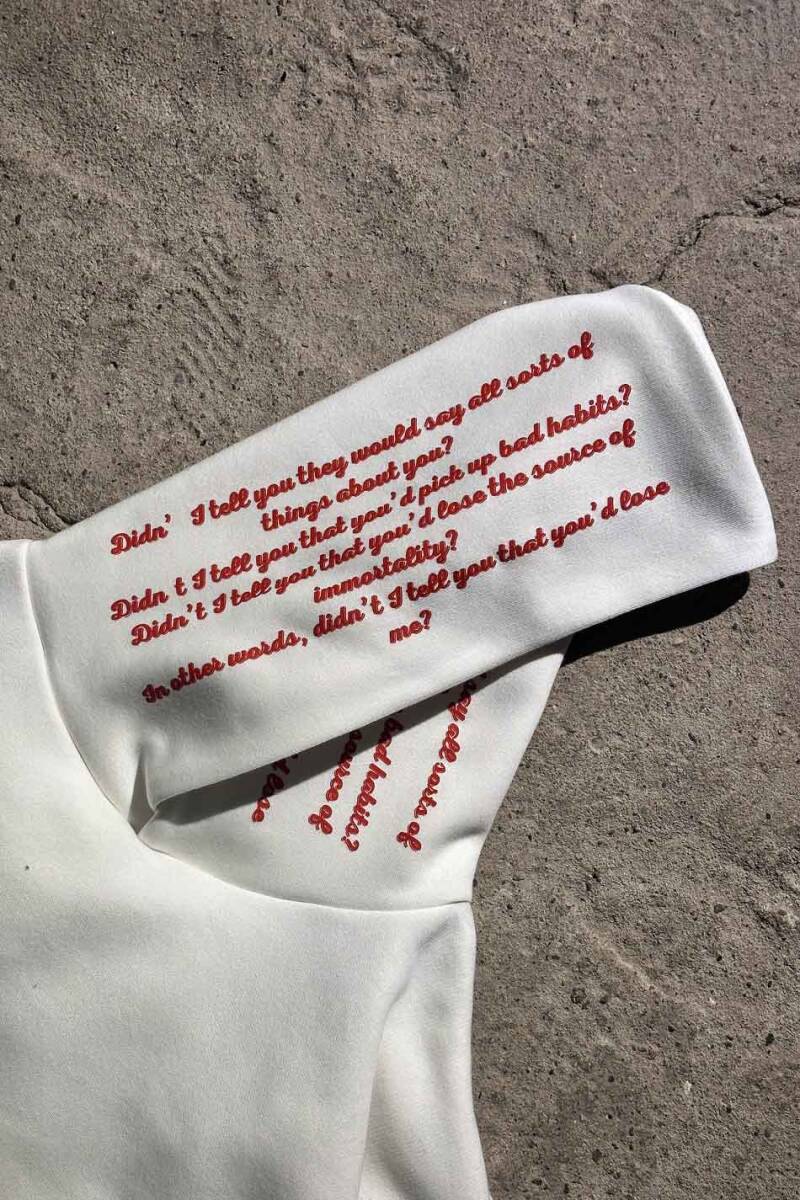 Didn’ I tell you they would say all sorts of
things about you?
Didn t I tell you that you’d pick up bad habits?
Didn’t I tell you that you’d lose the source of
immortality?
In other words, didn’t I tell you that you’d lose
me?
say all sorts of
bad habits?
source of
lose